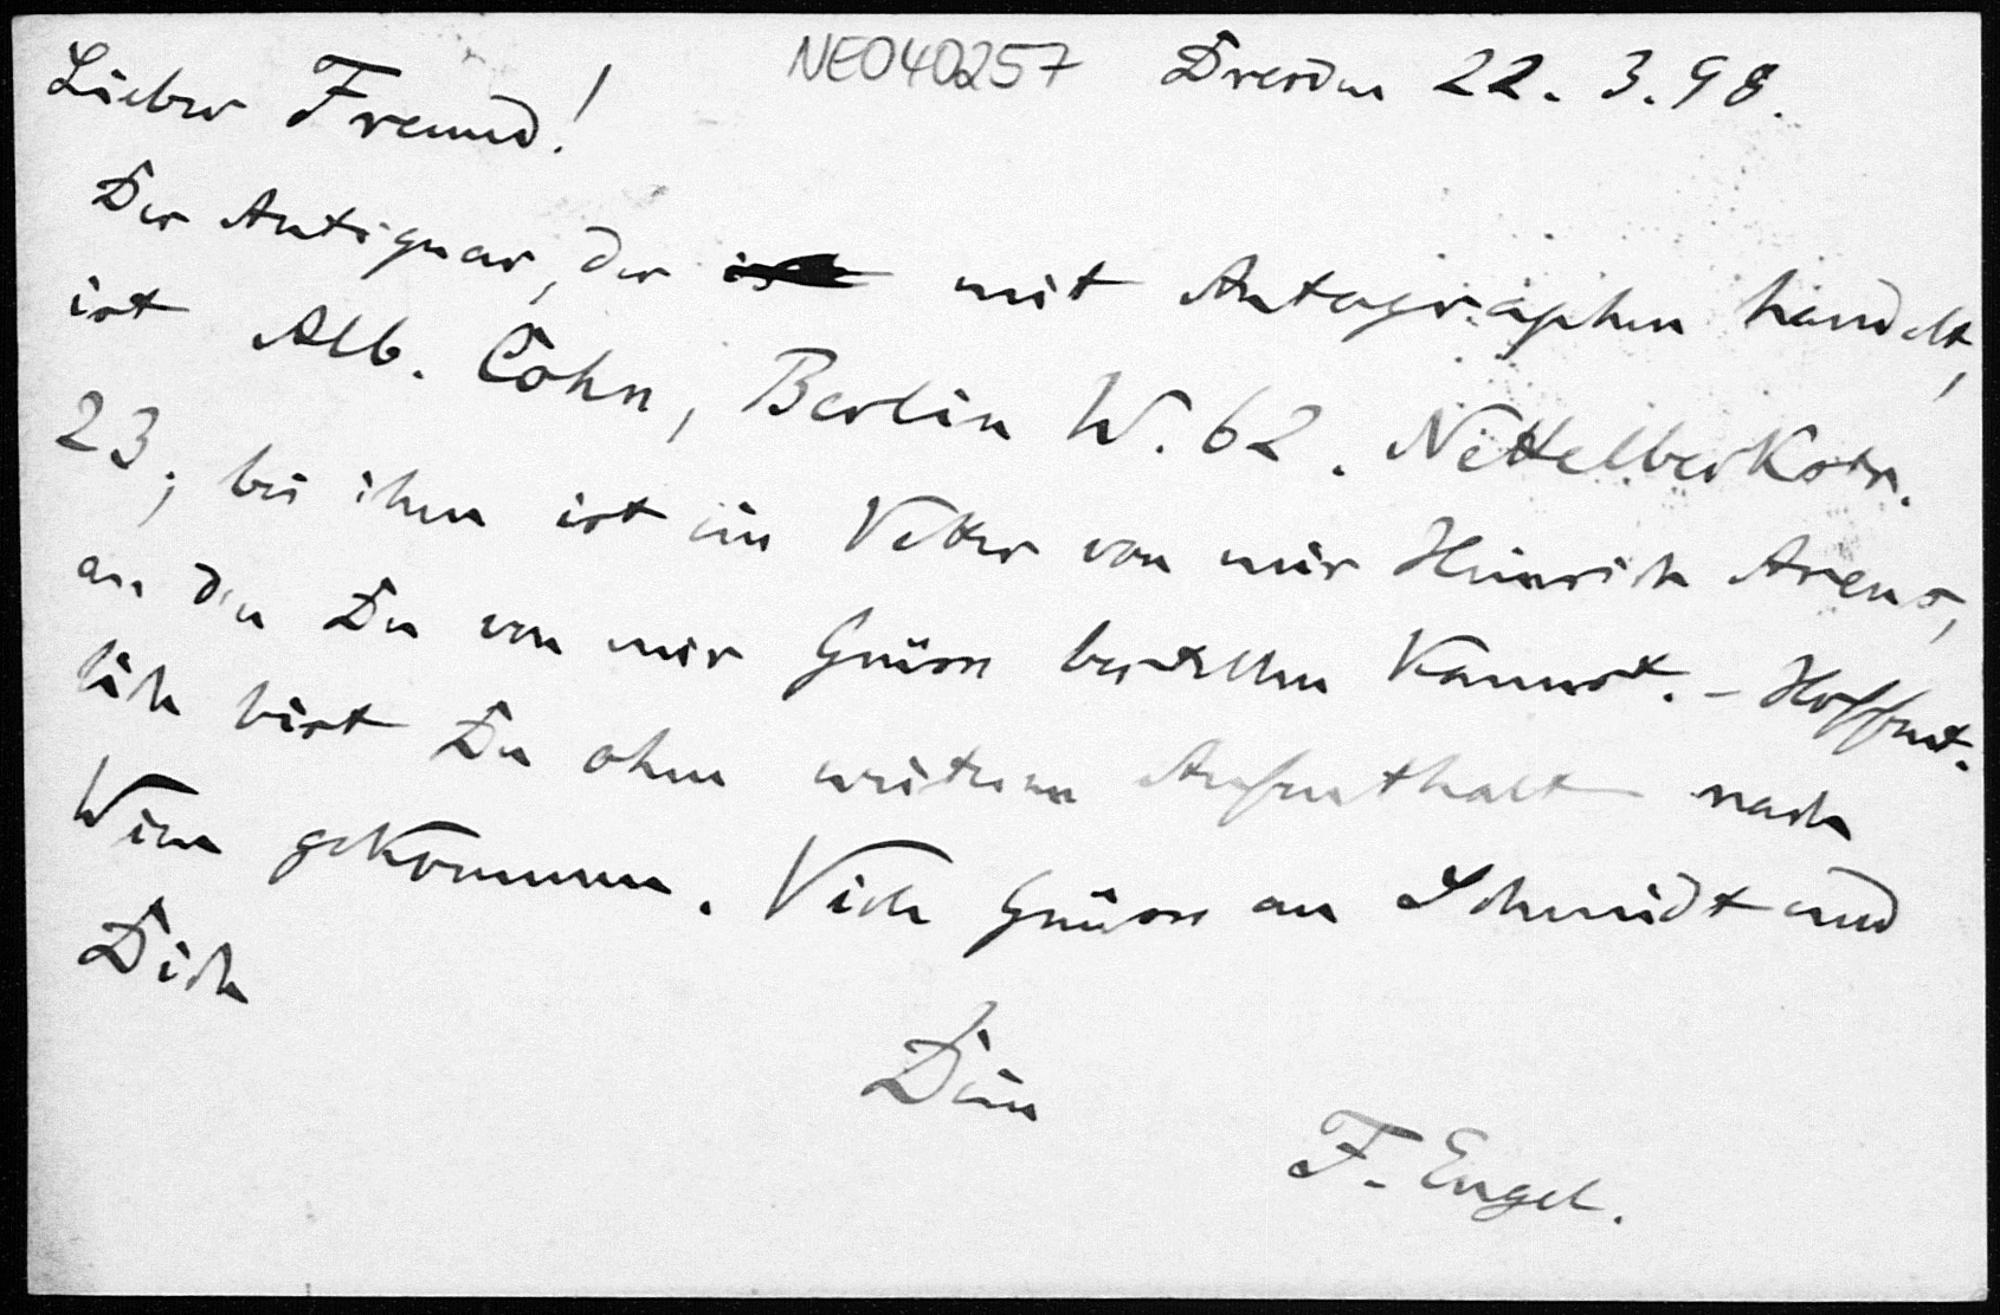 NE040257
Dresden 22. 3. 98.
Lieber Freund!
Der Antiquar, der mit Autographen handelt,
ist Alb. Cohn, Berlin W. 62. Nettelbeckstr.
23; bei ihm ist ein Vetter von mir Heinrich Arens,
an den Du von mir Grüsse bestellen kannst. - Hoffent-
lich bist Du ohne weiteren Aufenthalt nach
Wien gekommen. Viele Grüsse an Schmidt und
Dich
Dein
F. Engel.